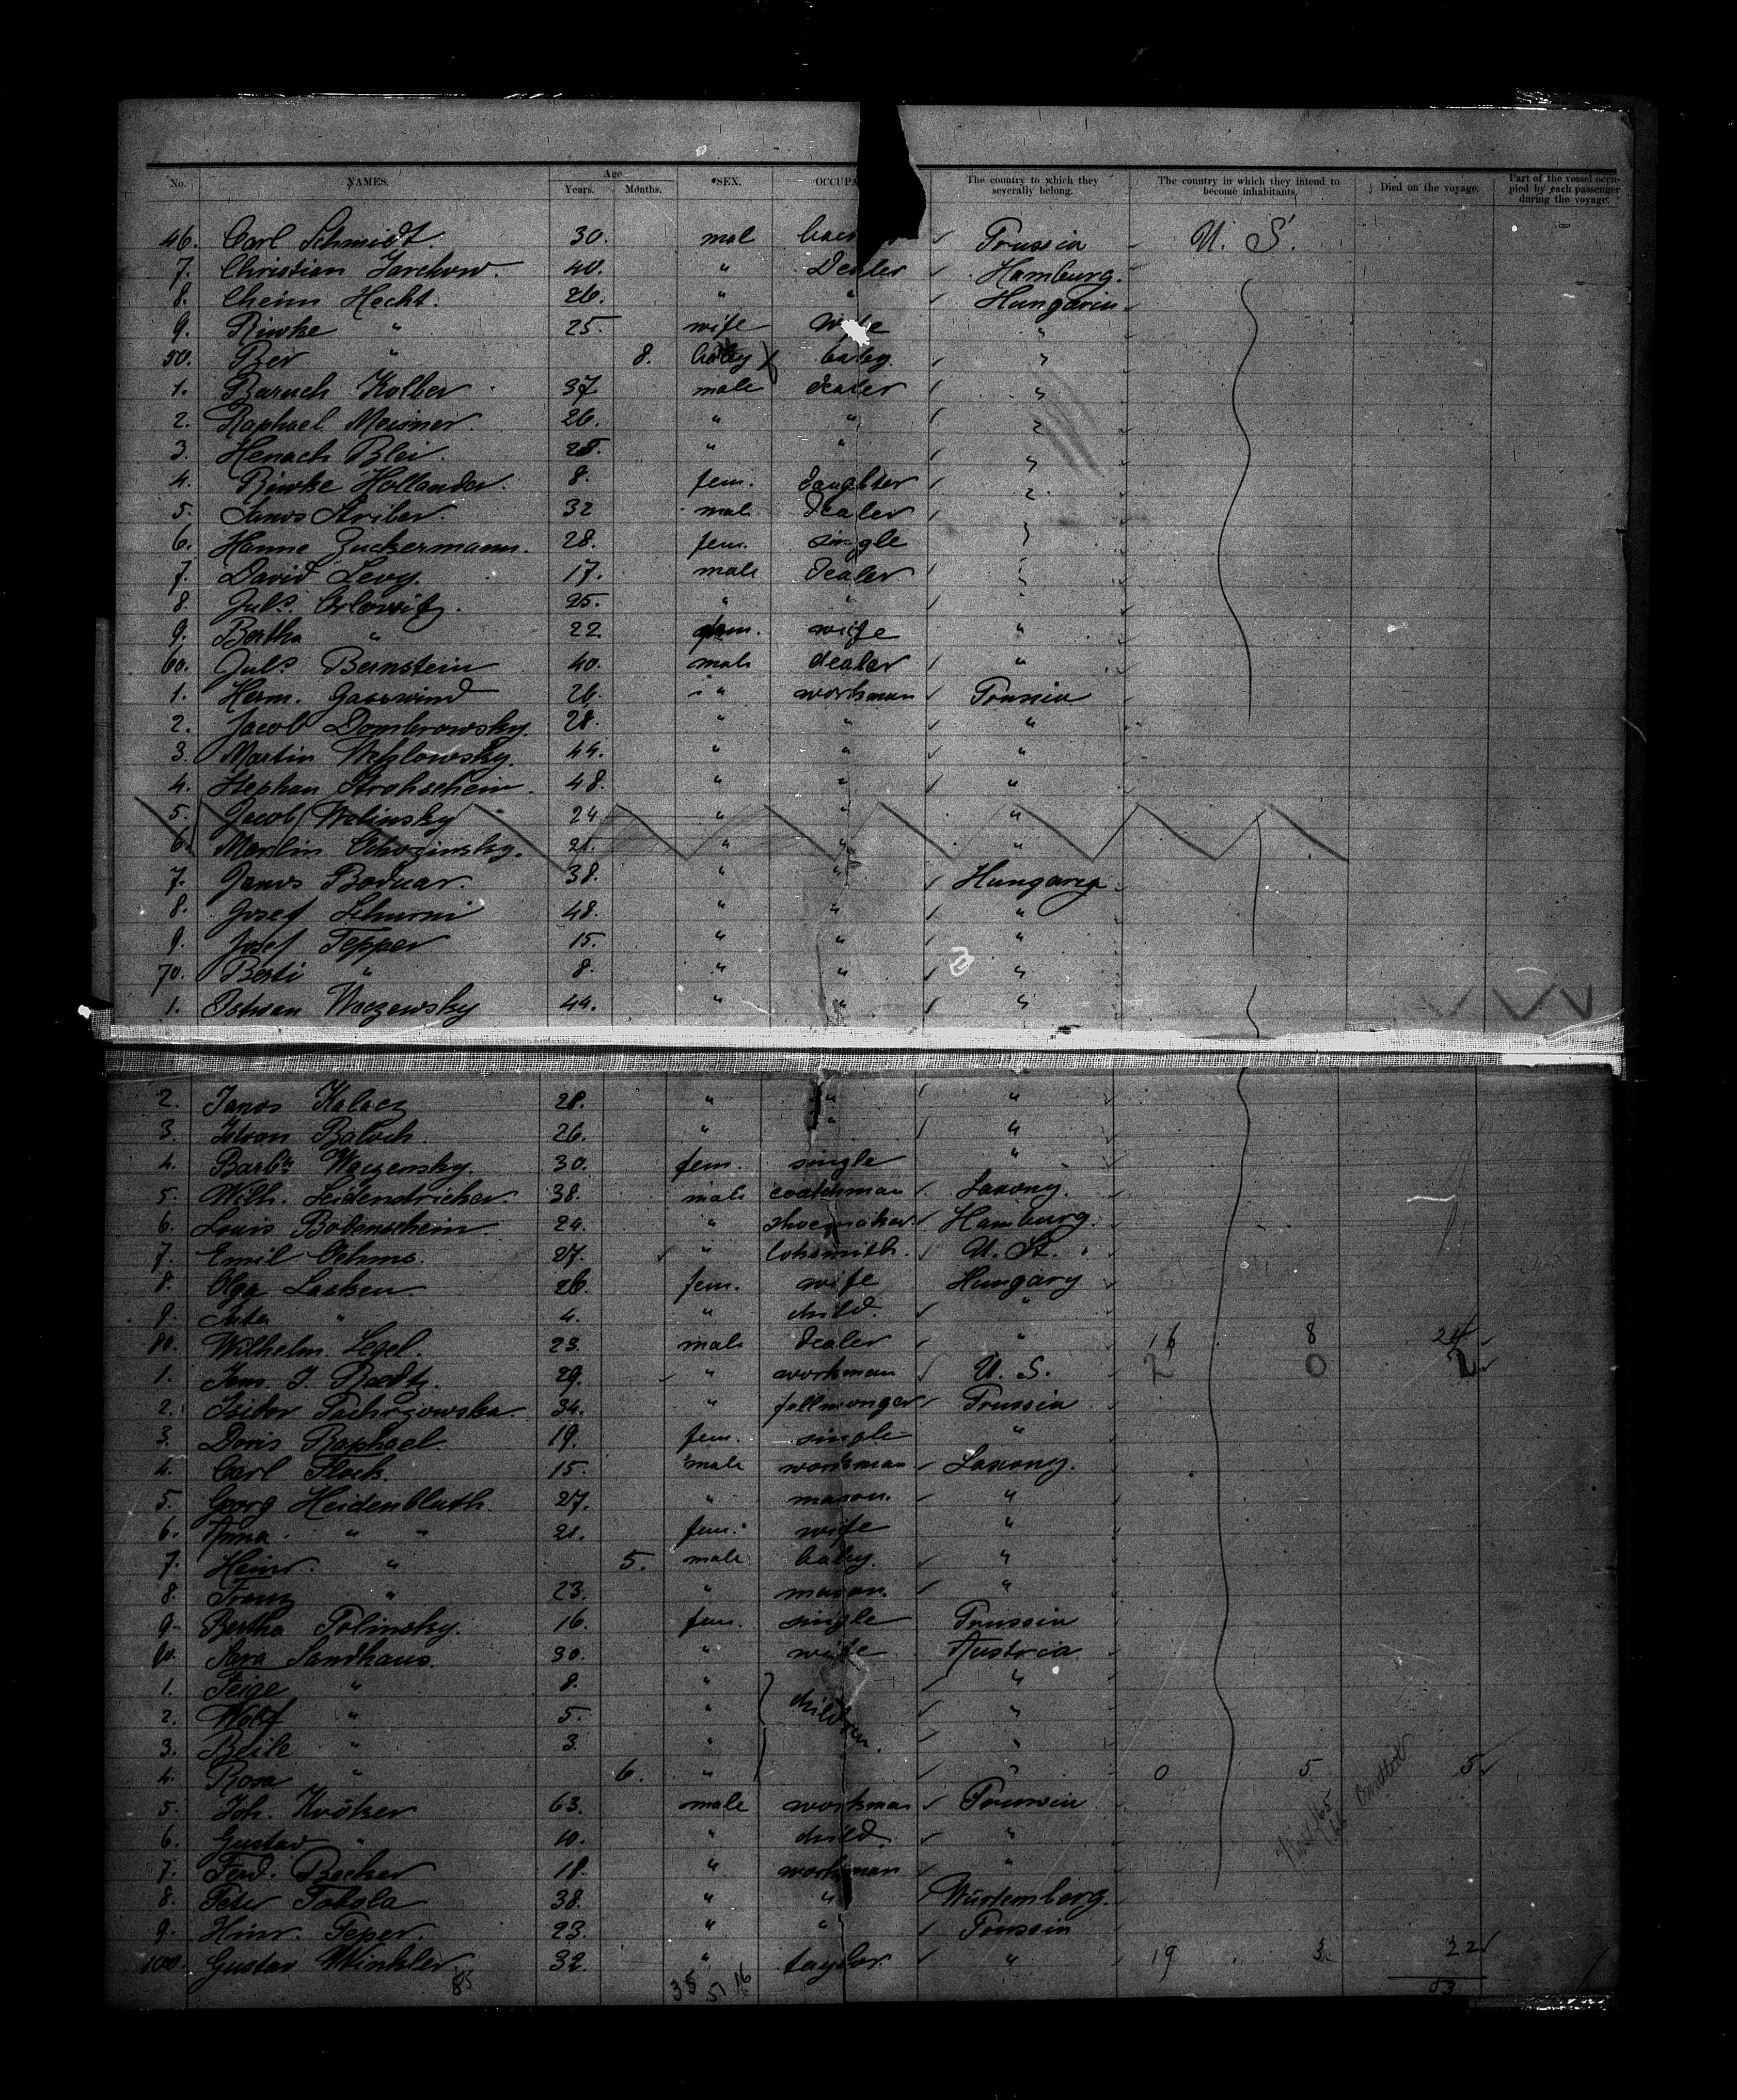 No. NAMES. Age Years. Months. SEX. OCCUPA The country to which they severally belong. The country in which they intend to become inhabitants. Died on the voyage. Part of the vessel occupied by each passenger during the voyage.
46. Carl Schmidt 30. mal Prussia U. S.
7. Christian Jarchow. 40. " Dealer Hamburg.
8. Cheim Hecht. 26. " " Hungaria
9. Riwke " 25. wife wife "
50. Ber " 8. baby baby "
1. Baruch Kolber 37 male dealer "
2. Raphael Meisner. 26. " " "
3. Henach Blei. 28. " " "
4. Riwke Hollander. 8. fem. daughter "
5. Janos Striber. 32 mal dealer "
6. Hanne Zuckermann. 28. fem. single "
7. David Levy. 17. male dealer "
8. Juls. Orlowitz. 25. " "
9. Bertha " 22. fem. wife "
60. Juls. Bernstein 40. male dealer "
1. Herm. Gasswind 26. " workman Prussia
2. Jacob Dombrowsky. 28. " " "
3. Martin Wehlowsky. 44. " " "
4. Stephan Strohschein. 48. " " "
5. Jacob Welinsky 24 " " "
6. Martin 21. " " "
7. Janos Bodnar. 38. " " Hungary
8. Josef Schurni 48. " " "
9. Josef Tepper 15. " " "
70. Berti " 8. " " "
1. Istvan Waczewsky 44. " " "
2. Janos Kalacz 28. " " "
3. Istvan Baloch. 26. " " "
4. Barba Waczensky. 30. fem. single "
5. Wilh. Seidenstricker. 38. male coatchman Saxony.
6. Louis Bobenschein. 24. " shoemaker Hamburg.
7. Emil Oehms. 27. " loksmith. U. St.
8. Olga Lasken 26. fem. wife Hungary
9. " 4. " child. "
80. Wilhelm Segel. 23. male dealer " 16 8 24
1. J. Raditz. 29. " workman U. S. 2 0 2
2. Isidor 34. " fellmonger Prussia
3. Doris Raphael. 19. fem. single "
4. Carl Flock. 15. male workman Saxony.
5. Georg Heidenbluth. 27. " mason. "
6. Anna " " 21. fem. wife "
7. Heinr. " 5. male baby. "
8. Franz " 23. " mason. "
9. Bertha Polinsky. 16. fem. single Prussia
90. Sara Sandhaus. 30. " wife Austria
1. Feige " 8. " children. "
2. Wolf " 5. " "
3. Beile " 3. " "
4. Rosa " 6. " " 0 5 5
5. Joh. Kröker 63. male workman Prussia
6. Gustav " 10. " child. "
7. Ferd. Becker 18. " workman "
8. Peter Tobola 38. " " Würtemberg.
9. Hinr. Teper. 23. " " Prussia
100. Gustav Winkler 32. " taylor. " 19 3 22
35 5 16
53